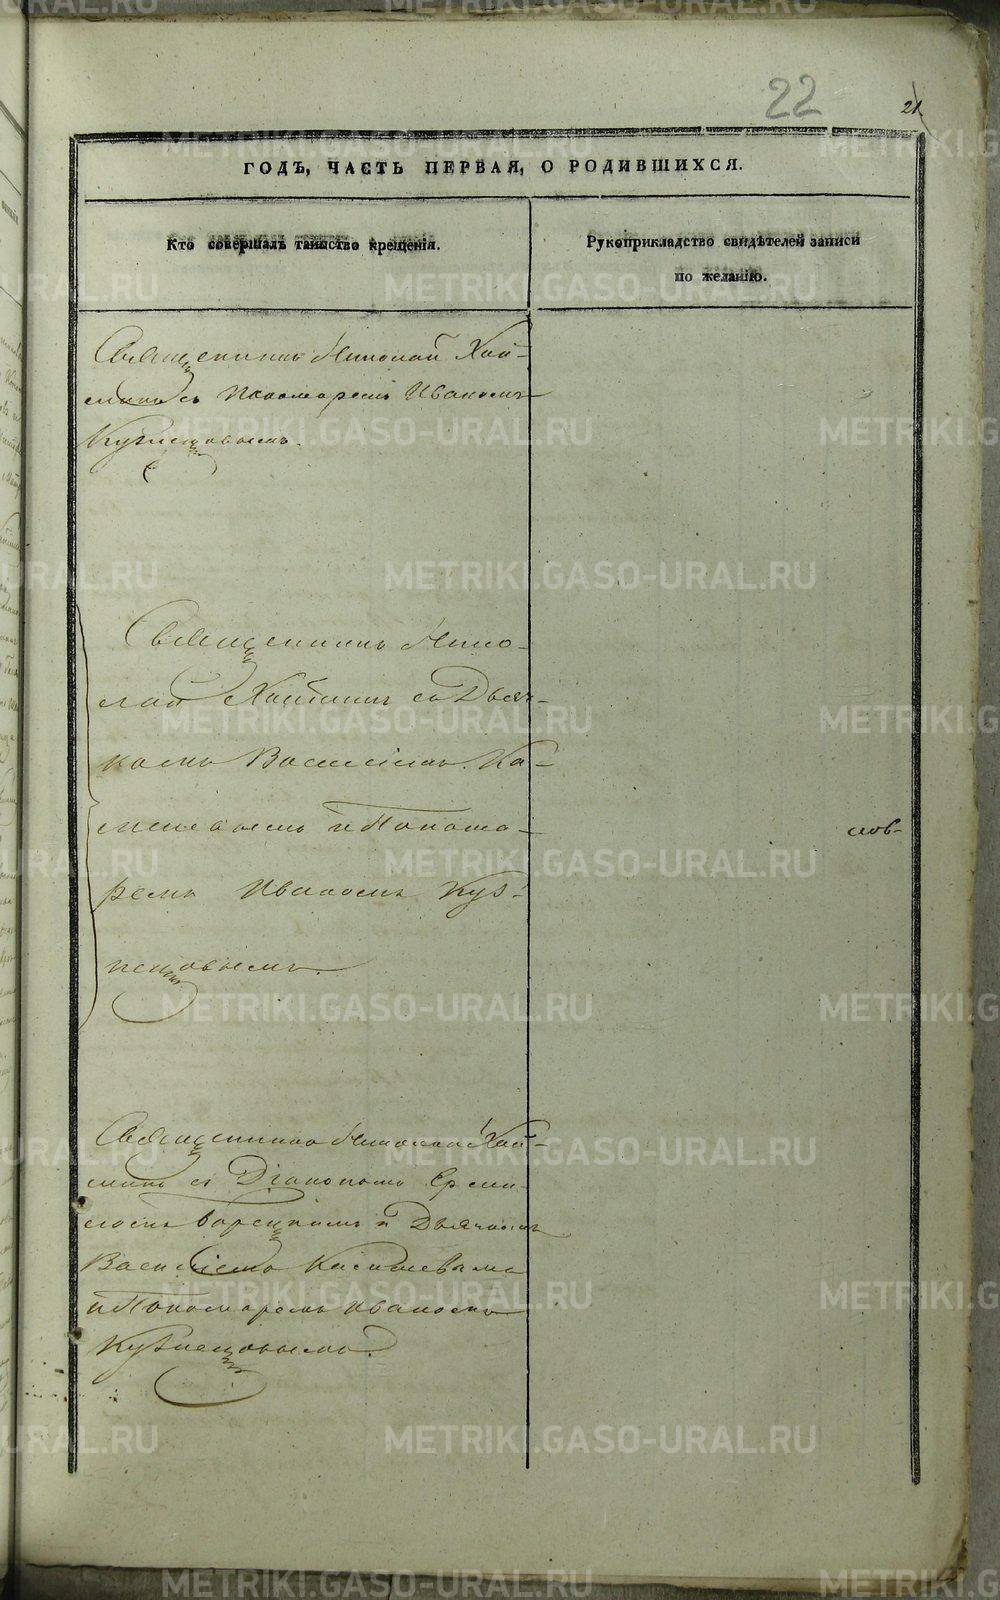 22
21
ГОДЪ, ЧАСТЬ ПЕРВАЯ, О РОДИВШИХСЯ.
Кто совершалъ таинство крещенія.
Рукоприкладство свидѣтелей записи
по желанію.
Священникъ Николай Хай-
минъ съ Пономаремъ Иваномъ
Кузнецовымъ.
Священникъ Нико-
лай Хайминъ съ Дьяч-
комъ Василіемъ Ка-
меневымъ и Понома-
ремъ Иваномъ Куз-
нецовымъ.
Священникъ Николай Хай-
минъ съ Діакономъ
и Дьячкомъ
Василіемъ
и Пономаремъ Иваномъ
Кузнецовымъ.
METRIKI.GASO-URAL.RU